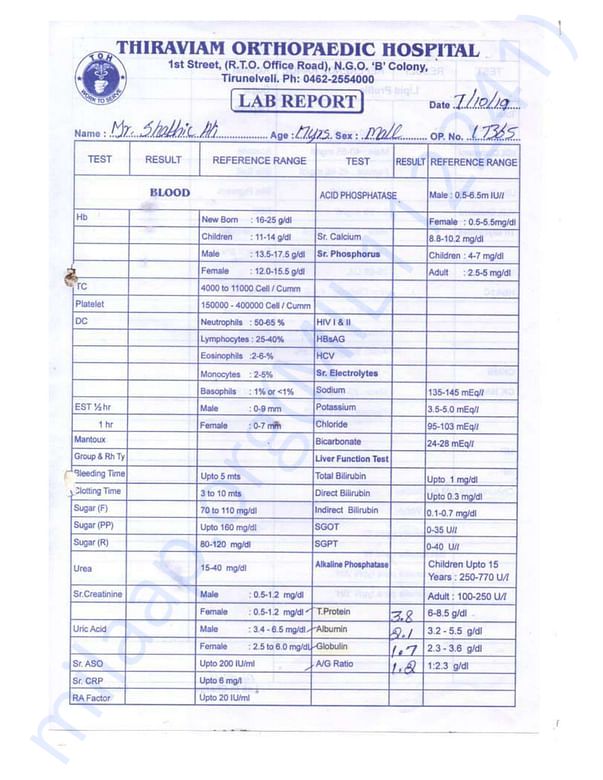 THIRAVIAM ORTHOPAEDIC HOSPITAL
1st Street, (R.T.O. Office Road), N.G.O. 'B' Colony,
Tirunelveli. Ph: 0462-2554000
TOH
WORK TO SERVE
LAB REPORT
Date 7/10/19
Name : Mr. Shathic Ali Age : Sex : Male OP. No. 17365
TEST RESULT REFERENCE RANGE TEST RESULT REFERENCE RANGE
BLOOD ACID PHOSPHATASE Male : 0.5-6.5m IU/l
Hb New Born : 16-25 g/dl Female : 0.5-5.5mg/dl
Children : 11-14 g/dl Sr. Calcium 8.8-10.2 mg/dl
Male : 13.5-17.5 g/dl Sr. Phosphorus Children : 4-7 mg/dl
Female : 12.0-15.5 g/dl Adult : 2.5-5 mg/dl
TC 4000 to 11000 Cell / Cumm
Platelet 150000 - 400000 Cell / Cumm
DC Neutrophils : 50-65 % HIV I & II
Lymphocytes : 25-40% HBsAG
Eosinophils :2-6-% HCV
Monocytes : 2-5% Sr. Electrolytes
Basophils : 1% or <1% Sodium 135-145 mEq/l
EST ½ hr Male : 0-9 mm Potassium 3.5-5.0 mEq/l
1 hr Female : 0-7 mm Chloride 95-103 mEq/l
Mantoux Bicarbonate 24-28 mEq/l
Group & Rh Ty Liver Function Test
Bleeding Time Upto 5 mts Total Bilirubin Upto 1 mg/dl
Clotting Time 3 to 10 mts Direct Bilirubin Upto 0.3 mg/dl
Sugar (F) 70 to 110 mg/dl Indirect Bilirubin 0.1-0.7 mg/dl
Sugar (PP) Upto 160 mg/dl SGOT 0-35 U/l
Sugar (R) 80-120 mg/dl SGPT 0-40 U/l
Urea 15-40 mg/dl Alkaline Phosphatase Children Upto 15
Years : 250-770 U/l
Sr.Creatinine Male : 0.5-1.2 mg/dl Adult : 100-250 U/l
Female : 0.5-1.2 mg/dl T.Protein 3.8 6-8.5 g/dl
Uric Acid Male : 3.4 - 6.5 mg/dl Albumin 2.1 3.2 - 5.5 g/dl
Female : 2.5 to 6.0 mg/dl Globulin 1.7 2.3 - 3.6 g/dl
Sr. ASO Upto 200 IU/ml A/G Ratio 1.2 1:2.3 g/dl
Sr. CRP Upto 6 mg/l
RA Factor Upto 20 IU/ml